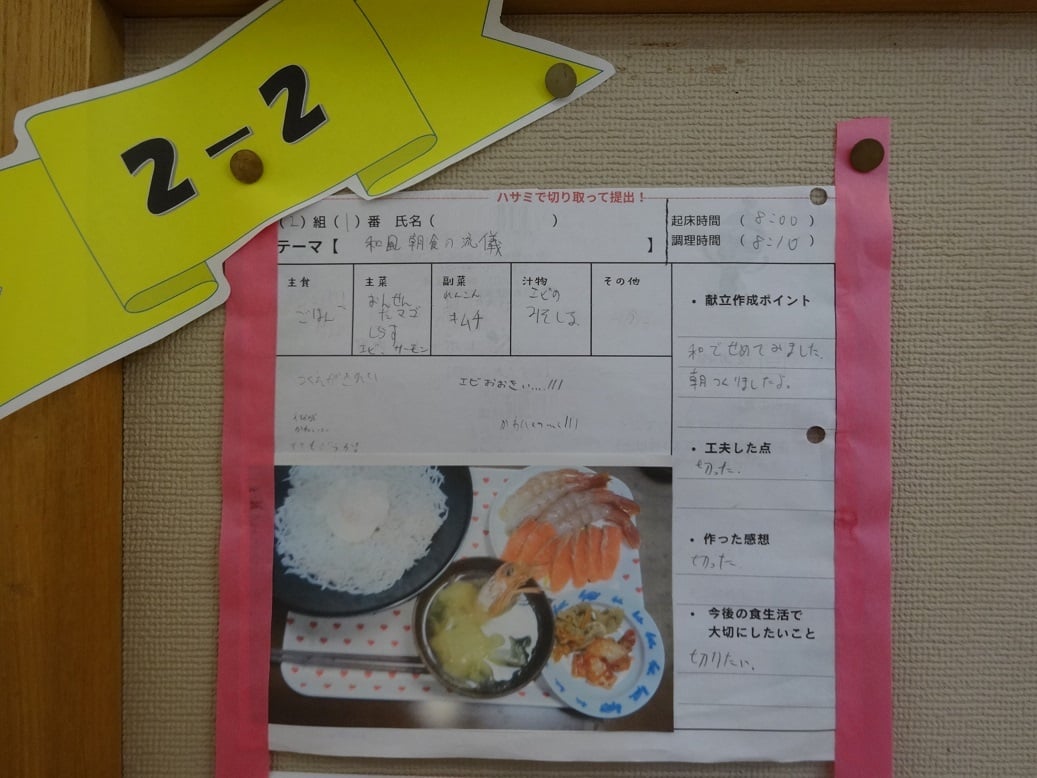 2-2
ハサミで切り取って提出！
(2) 組 (1) 番 氏名 ( )
テーマ【 和風朝食の流儀 】
起床時間 ( 8:00 )
調理時間 ( 8:10 )
主食
ごはん
主菜
おんせん
たマゴ
しらす
エビ、サーモン
副菜
れんこん
キムチ
汁物
エビの
みそしる
その他
エビおおきい....!!!
・献立作成ポイント
和でせめてみました。
朝つくりましたよ。
・工夫した点
切った。
・作った感想
切った
・今後の食生活で
大切にしたいこと
切りたい。